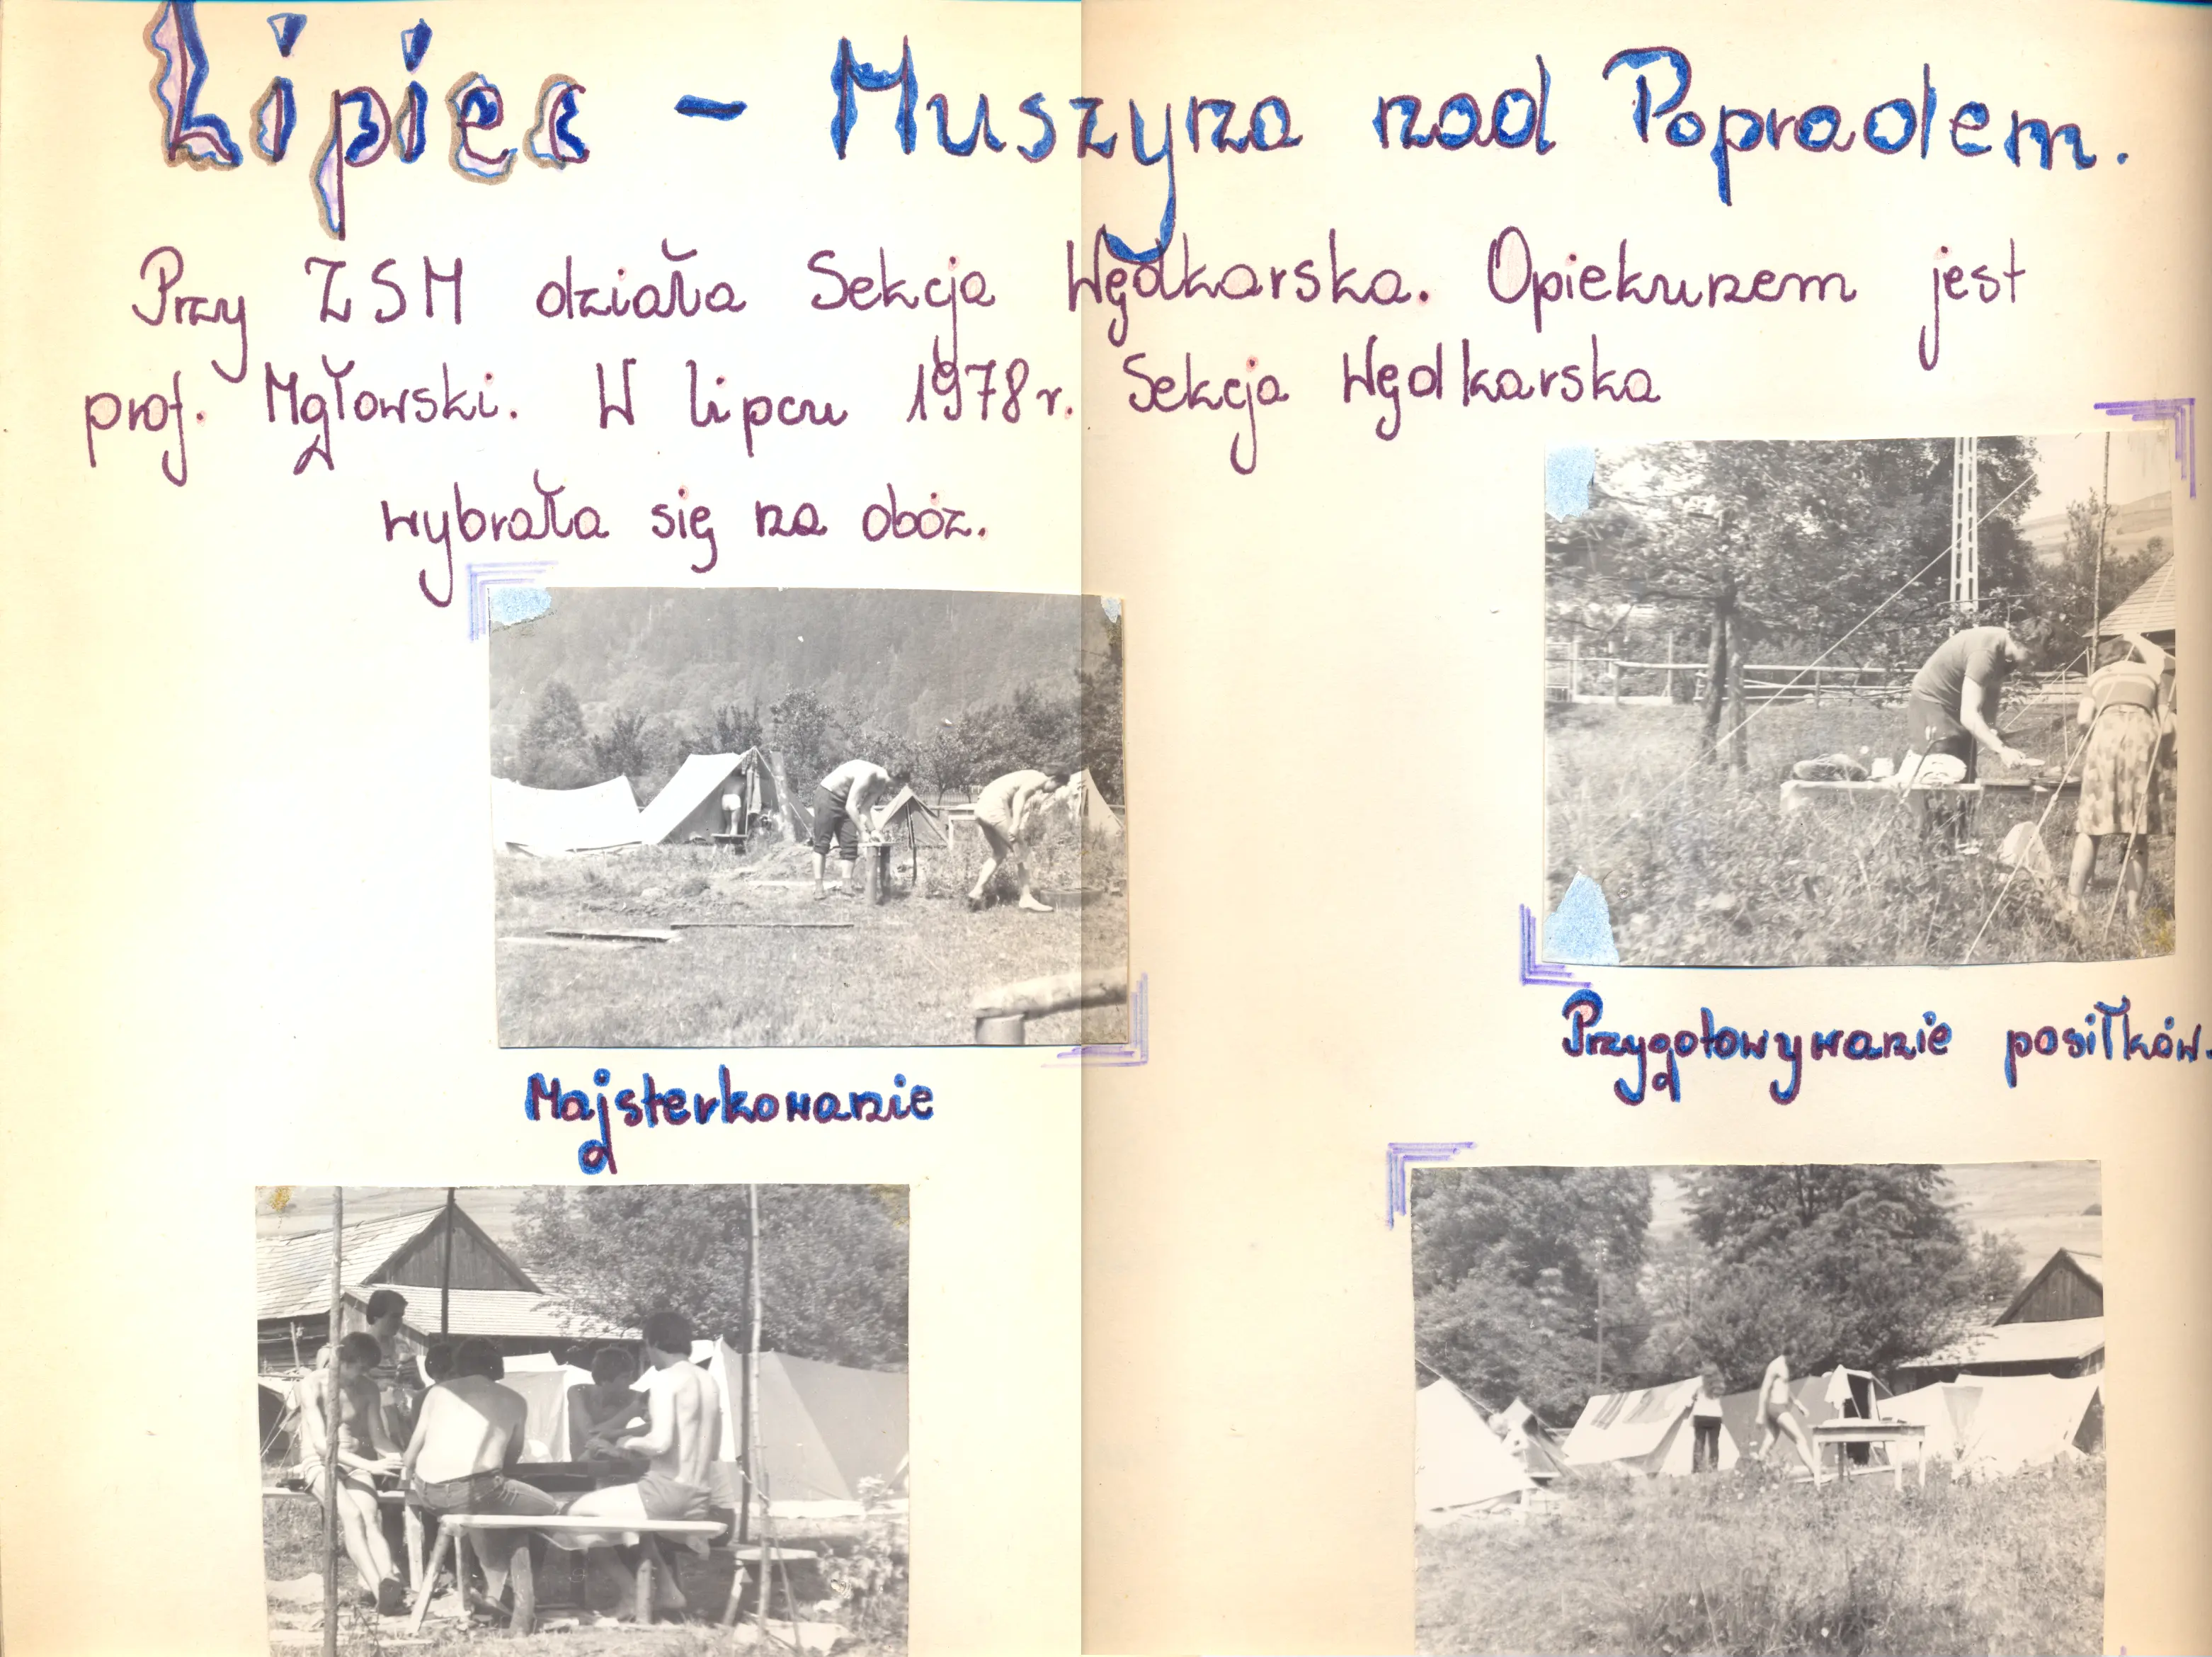 Lipiec - Muszyna nad Popradem.
Przy ZSM działa Sekcja Wędkarska. Opiekunem jest
prof. Mgłowski. W lipcu 1978r. Sekcja Wędkarska
wybrała się na obóz.
Majsterkowanie
Przygotowywanie posiłków.